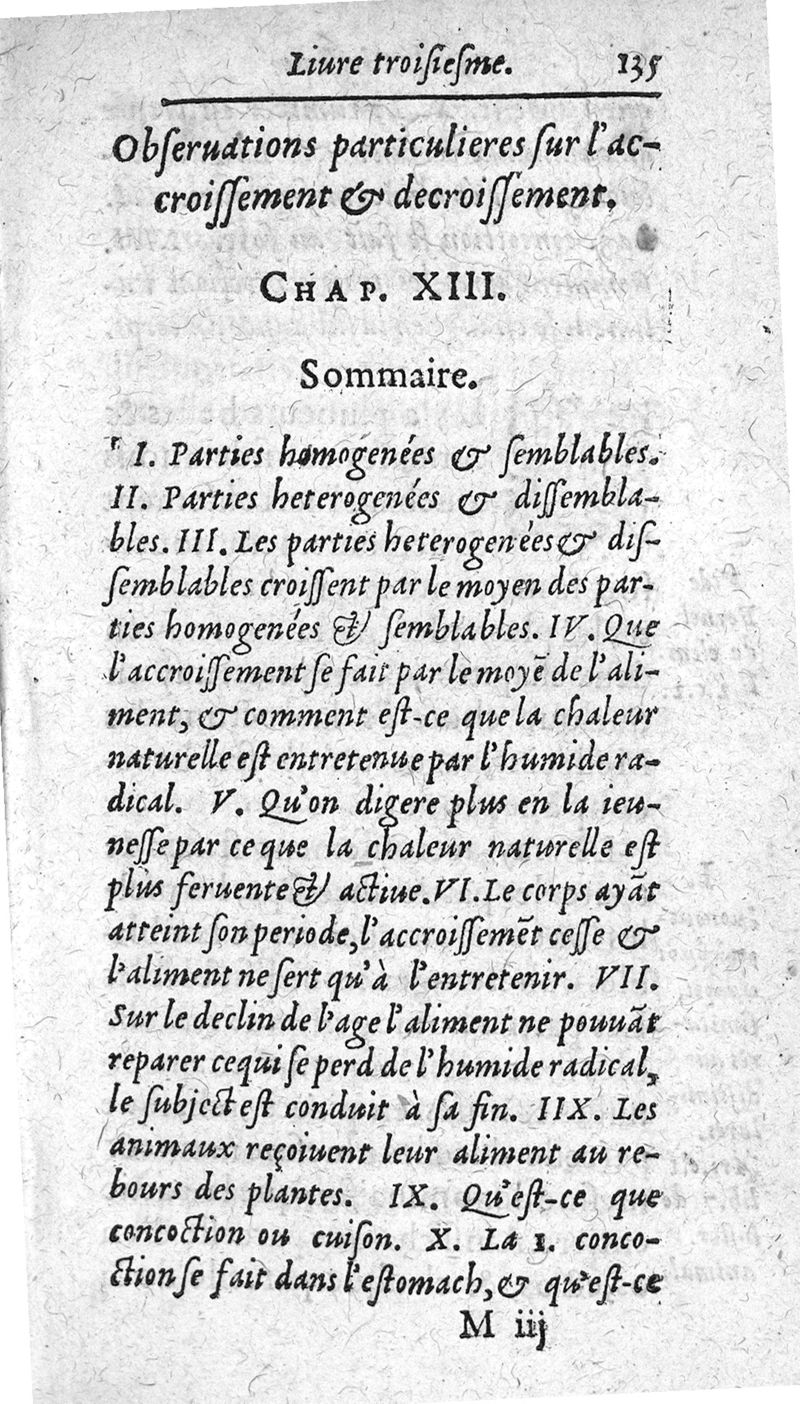 Liure troiſieſme. 135
Obſeruations particulieres ſur l'ac-
croiſſement & decroiſſement.
CHAP. XIII.
Sommaire.
I. Parties homogenées & ſemblables.
II. Parties heterogenées & diſſembla-
bles. III. Les parties heterogenées & diſ-
ſemblables croiſſent par le moyen des par-
ties homogenées & ſemblables. IV. Que
l'accroiſſement ſe fait par le moyẽ de l'ali-
ment, & comment eſt-ce que la chaleur
naturelle eſt entretenue par l'humide ra-
dical. V. Qu'on digere plus en la ieu-
neſſe par ce que la chaleur naturelle eſt
plus feruente & actiue. VI. Le corps ayãt
atteint ſon periode, l'accroiſſemẽt ceſſe &
l'aliment ne ſert qu'à l'entretenir. VII.
Sur le declin de l'age l'aliment ne pouuãt
reparer ce qui ſe perd de l'humide radical,
le ſubject eſt conduit à ſa fin. IIX. Les
animaux reçoiuent leur aliment au re-
bours des plantes. IX. Qu'eſt-ce que
concoction ou cuiſon. X. La 1. conco-
ction ſe fait dans l'eſtomach, & qu'eſt-ce
M iij